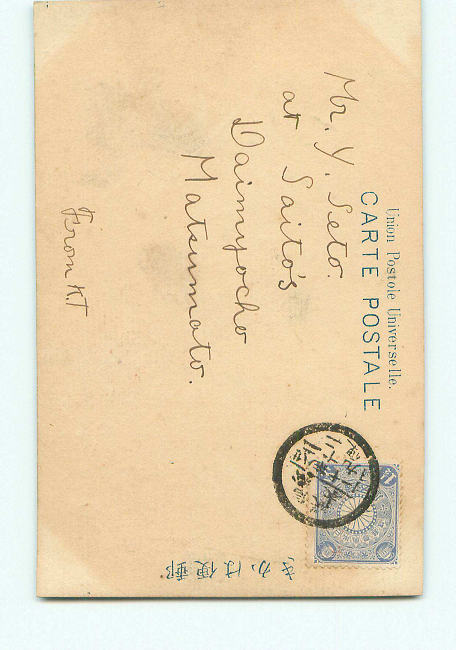 Union Postale Universelle.
CARTE POSTALE
Mr. Y. Seto.
at Saito's
Daimyocho
Matsumoto.
From K.T
郵便はかき